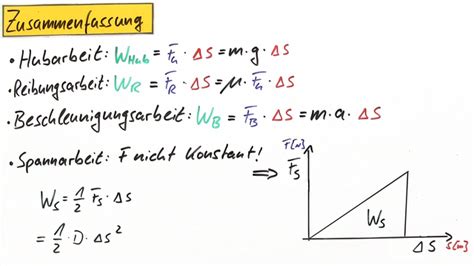 Zusammenfassung
• Hubarbeit: W_Hub = F_G · ΔS = m · g · ΔS
• Reibungsarbeit: W_R = F_R · ΔS = μ · F_G · ΔS
• Beschleunigungsarbeit: W_B = F_B · ΔS = m · a · ΔS
• Spannarbeit: F nicht Konstant!
W_S = 1/2 F_S · ΔS
= 1/2 · D · ΔS²
⇒
F[N]
F_S
W_S
ΔS
S[m]